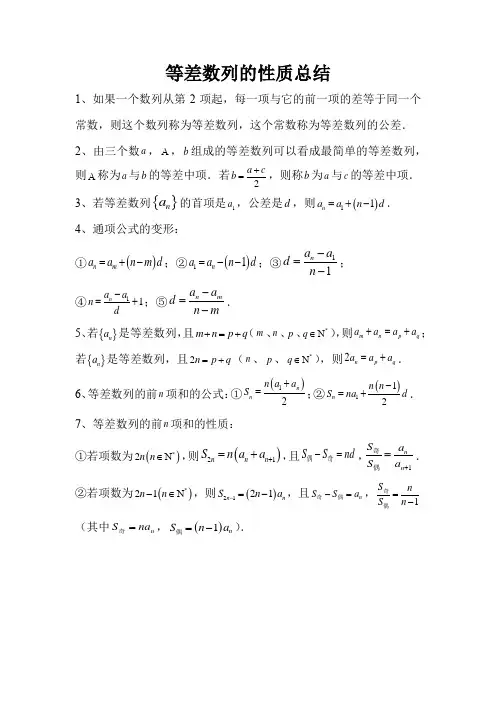 等差数列的性质总结
1、如果一个数列从第 2 项起，每一项与它的前一项的差等于同一个
常数，则这个数列称为等差数列，这个常数称为等差数列的公差．
2、由三个数 a，A，b 组成的等差数列可以看成最简单的等差数列，
则 A 称为 a 与 b 的等差中项．若 b=(a+c)/2，则称 b 为 a 与 c 的等差中项．
3、若等差数列{aₙ}的首项是 a₁，公差是 d，则 aₙ=a₁+(n−1)d．
4、通项公式的变形：
①aₙ=aₘ+(n−m)d；②a₁=aₙ−(n−1)d；③d=(aₙ−a₁)/(n−1)；
④n=(aₙ−a₁)/d+1；⑤d=(aₙ−aₘ)/(n−m)．
5、若{aₙ}是等差数列，且 m+n=p+q（m、n、p、q∈N*），则 aₘ+aₙ=aₚ+a_q；
若{aₙ}是等差数列，且 2n=p+q（n、p、q∈N*），则 2aₙ=aₚ+a_q．
6、等差数列的前 n 项和的公式：①Sₙ=n(a₁+aₙ)/2；②Sₙ=na₁+n(n−1)/2 d．
7、等差数列的前 n 项和的性质：
①若项数为 2n(n∈N*)，则 S₂ₙ=n(aₙ+aₙ₊₁)，且 S偶−S奇=nd，S奇/S偶=aₙ/aₙ₊₁．
②若项数为 2n−1(n∈N*)，则 S₂ₙ₋₁=(2n−1)aₙ，且 S奇−S偶=aₙ，S奇/S偶=n/(n−1)
（其中 S奇=naₙ，S偶=(n−1)aₙ）．